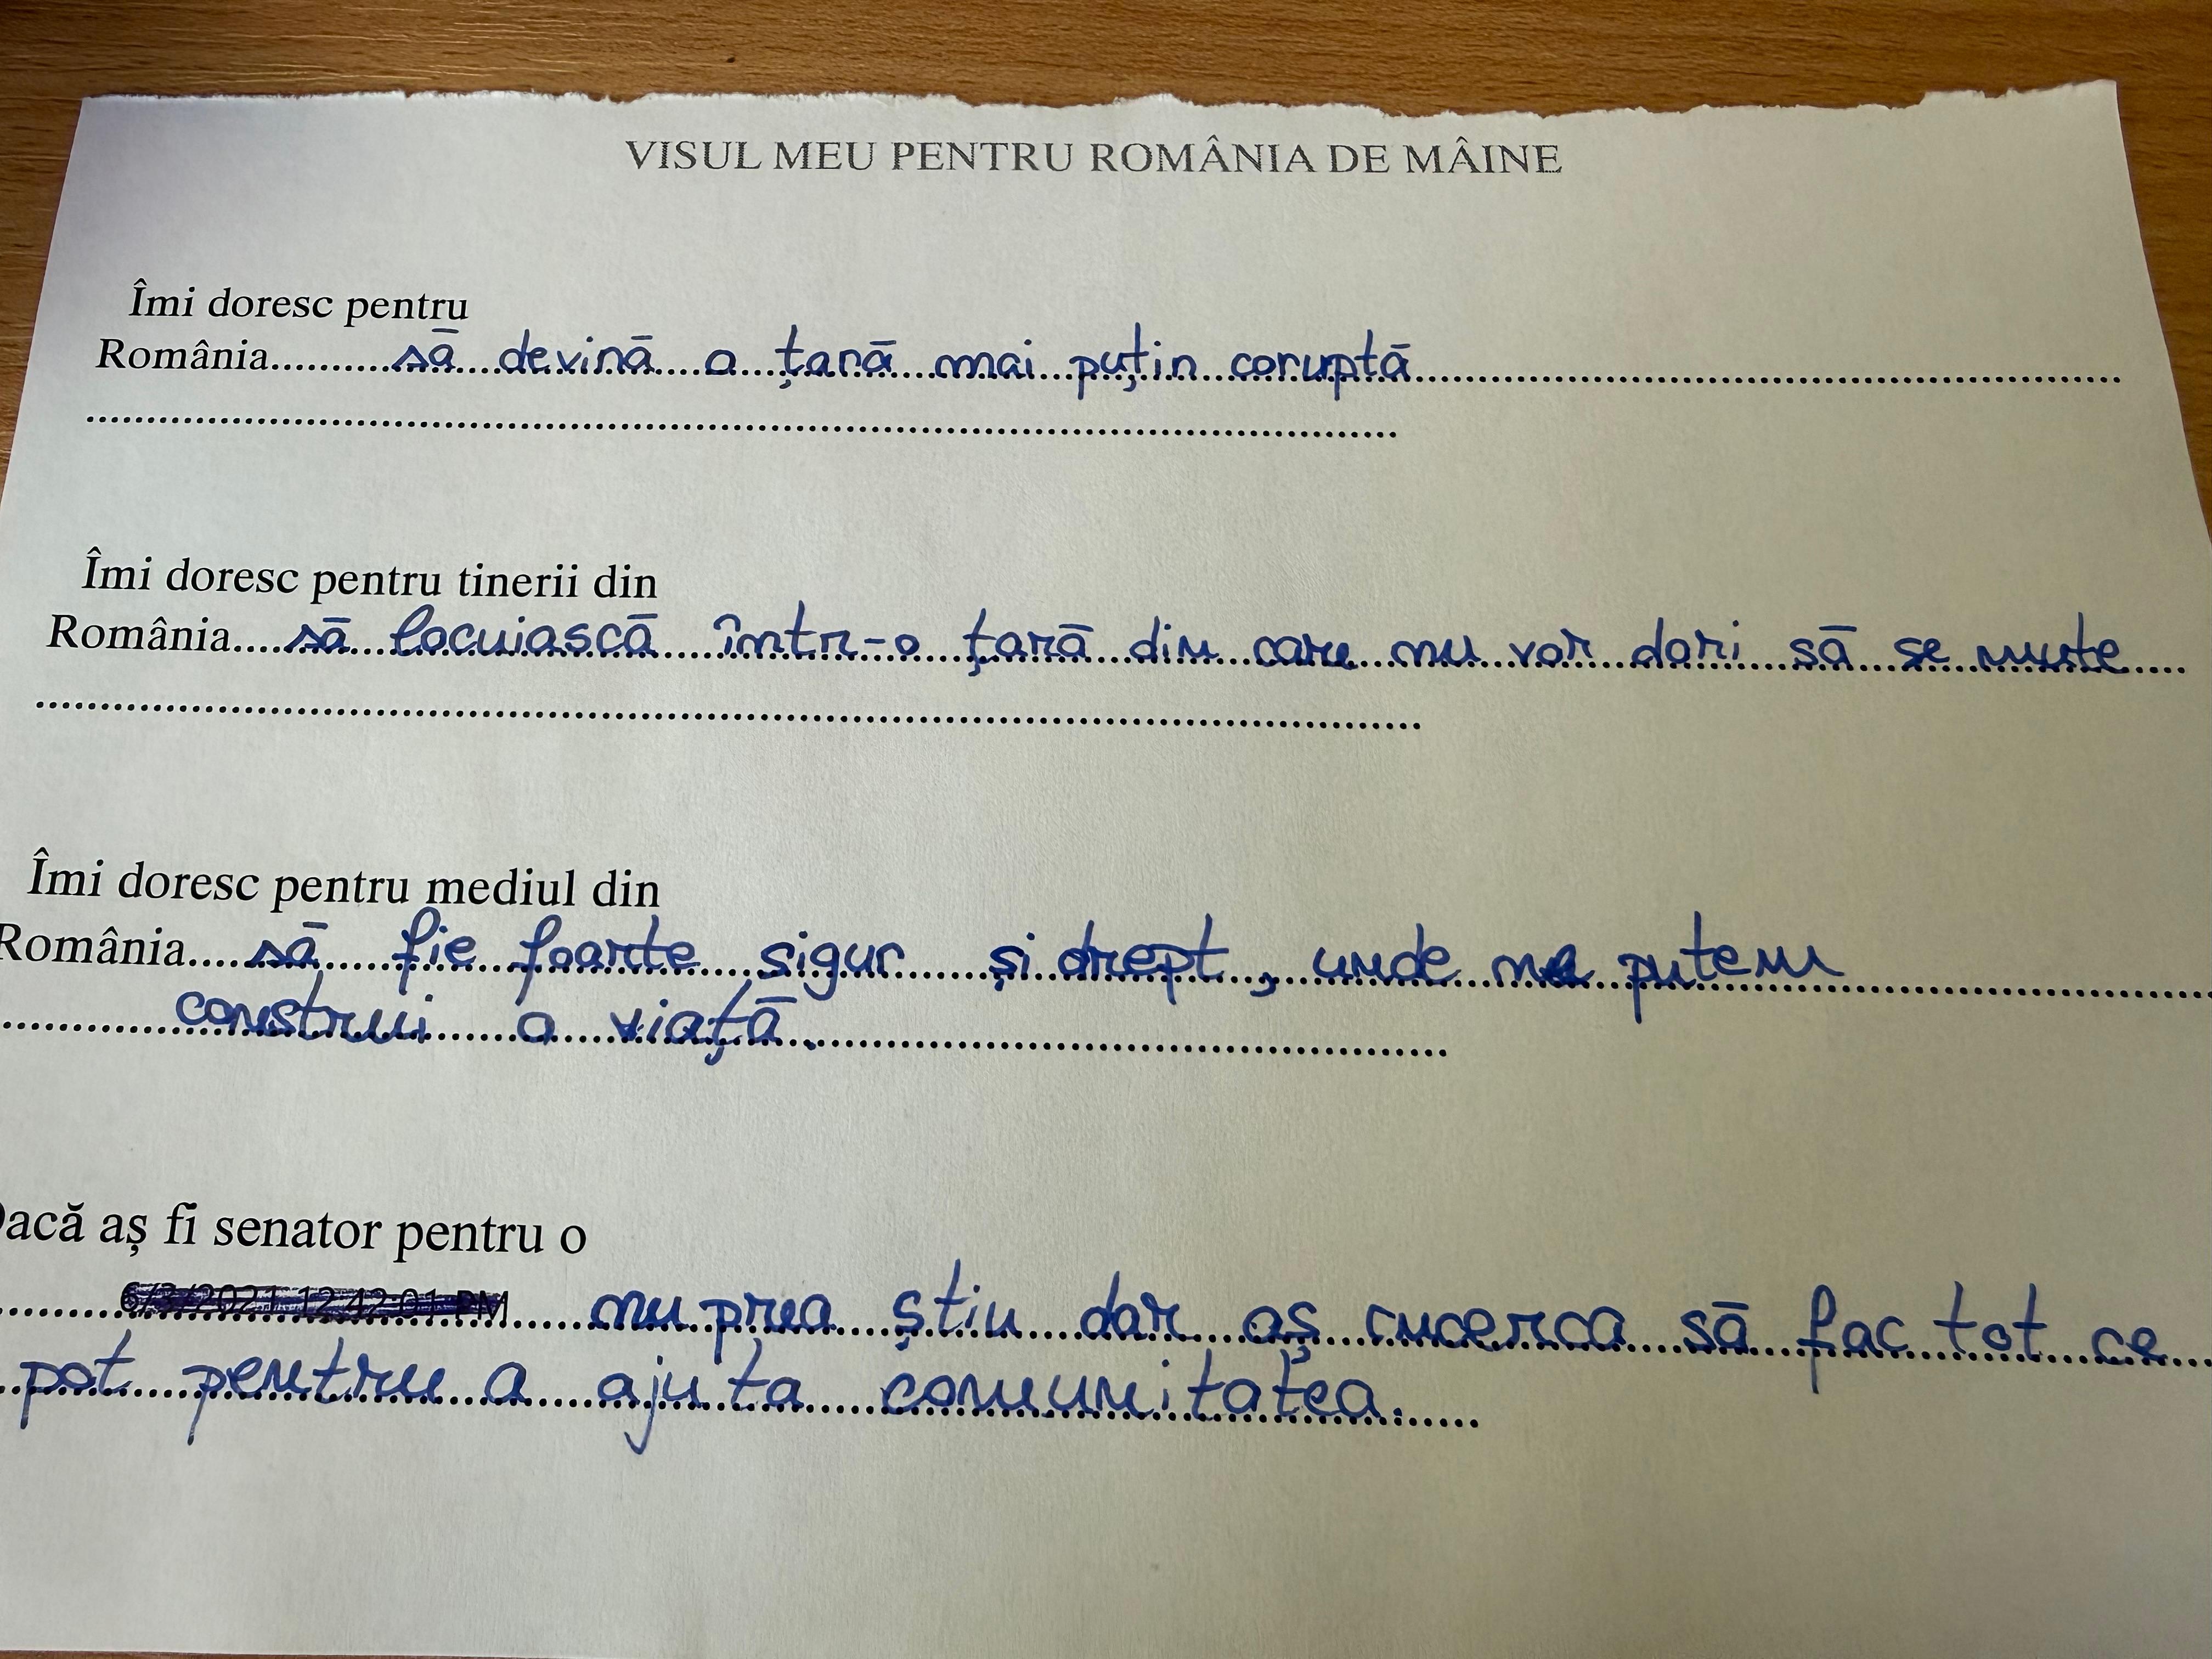 VISUL MEU PENTRU ROMÂNIA DE MÂINE
Îmi doresc pentru
România..........să devină o țară mai puțin coruptă
Îmi doresc pentru tinerii din
România....să locuiască într-o țară din care nu vor dori să se mute....
Îmi doresc pentru mediul din
România....să fie foarte sigur și drept, unde ne putem
construi o viață.
Dacă aș fi senator pentru o
6/3/2021 12:42:01 PM nu prea știu dar aș încerca să fac tot ce
pot pentru a ajuta comunitatea.